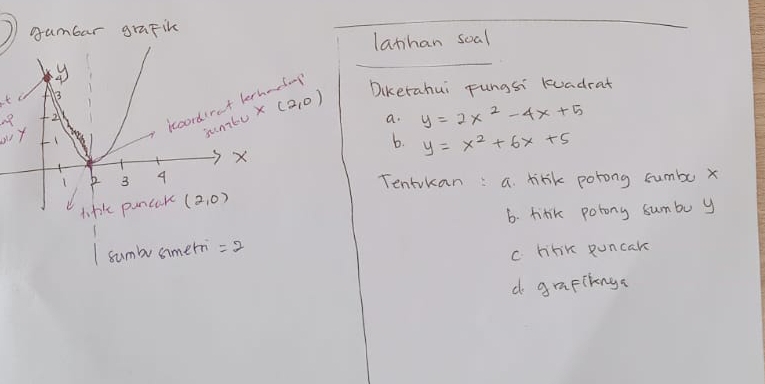 gambar grafik
y
4
3
2
1
koordinat terhadap
sumbu x (2,0)
x
1 2 3 4
titik puncak (2,0)
sumbu simetri = 2
latihan soal
Diketahui fungsi kuadrat
a. y = 2x² - 4x + 5
b. y = x² + 6x + 5
Tentukan : a. titik potong sumbu x
b. titik potong sumbu y
c. titik puncak
d. grafiknya